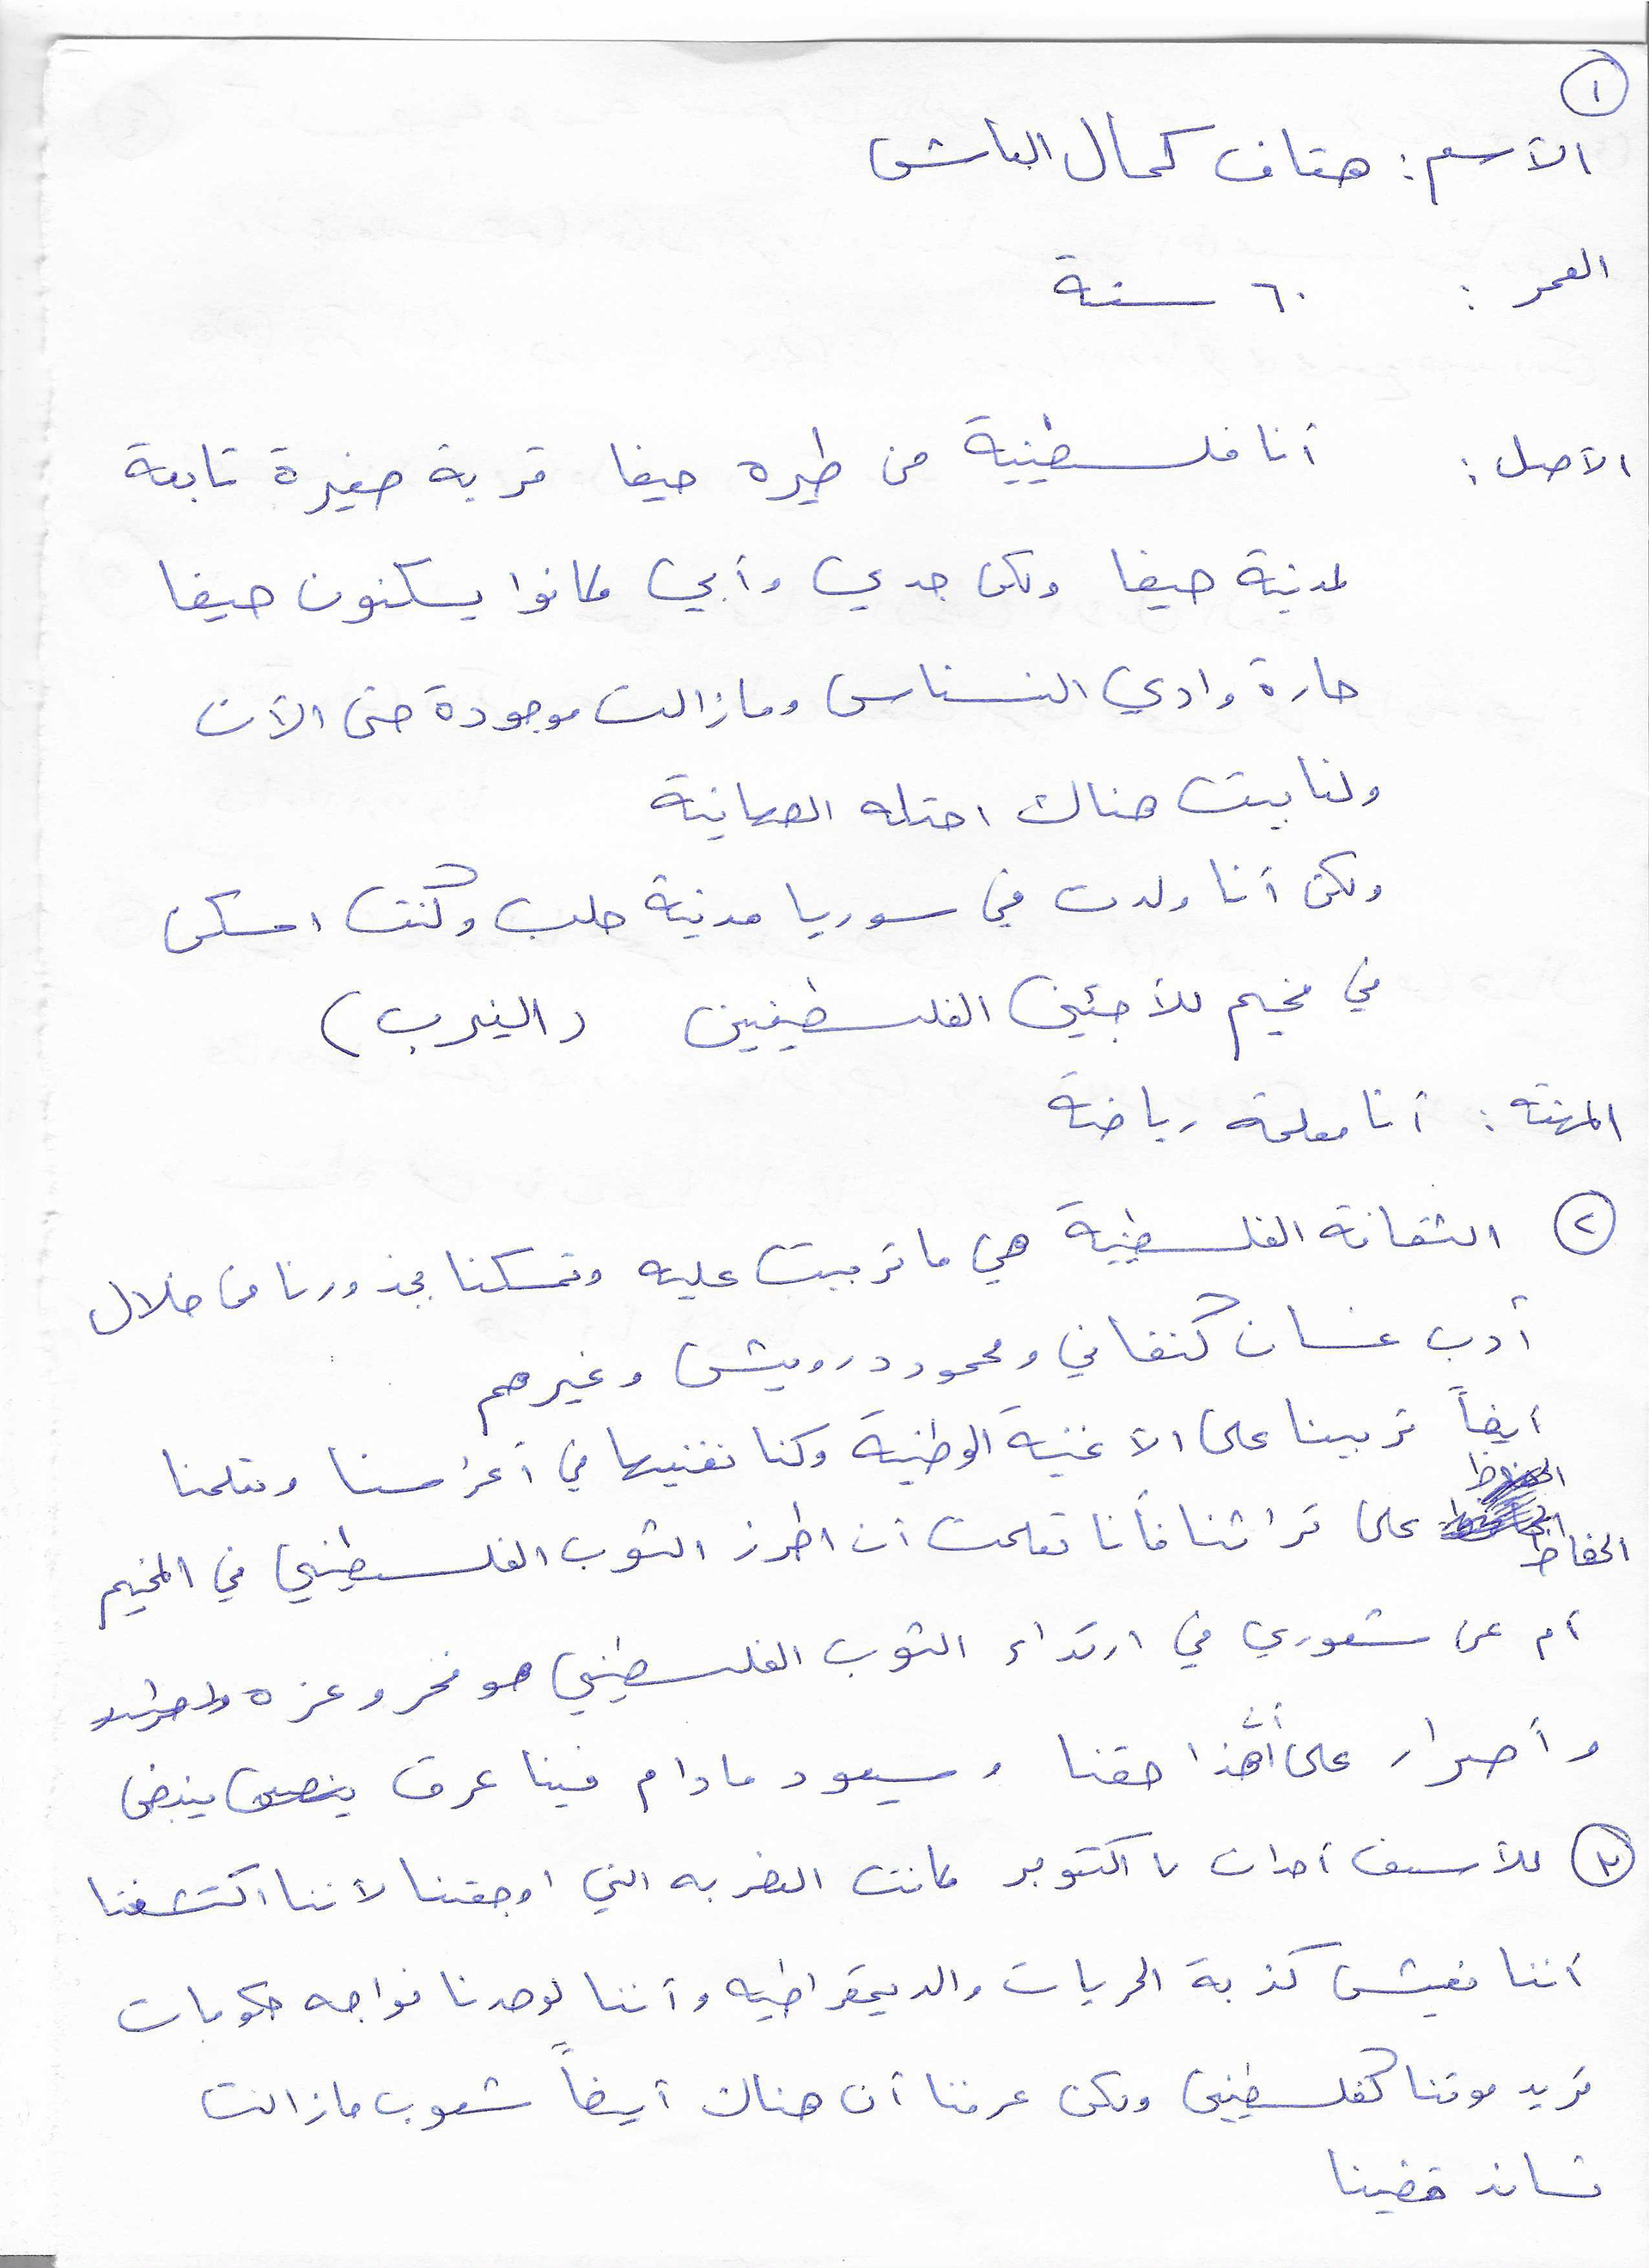 ١
الأسم : هتاف كمال الباش
العمر : ٦٠ سنة
الأصل : أنا فلسطينية من طيره حيفا قرية صغيرة تابعة
لمدينة حيفا ولكن جدي وأبي كانوا يسكنون حيفا
حارة وادي النسناس ومازالت موجودة حتى الآن
ولنا بيت هناك احتله الصهاينة
ولكن أنا ولدت في سوريا مدينة حلب وكنت اسكن
في مخيم للأجئين الفلسطينين (النيرب)
المهنته : أنا معلمة رياضة
٢ الثقافة الفلسطينية هي ما تربيت عليه وتمسكنا بجذورنا من خلال
أدب غسان كنفاني ومحمود درويش وغيرهم
أيضاً تربينا على الأغنية الوطنية وكنا نغنيها في أعراسنا وتعلمنا
الحفاظ على تراثنا فأنا تعلمت أن اطرز الثوب الفلسطيني في المخيم
أم عن شعوري في ارتداء الثوب الفلسطيني هو فخر وعزه
وأصرار على أن هذا حقنا وسيعود مادام فينا عرق ينبض
٣ للأسف أحداث ٧ اكتوبر كانت الضربه التي اوجعتنا لأننا اكتشفنا
أننا نعيش كذبة الحريات والديمقراطيه وأننا لوحدنا نواجه حكومات
تريد موتنا كفلسطيني ولكن عرفنا أن هناك أيضاً شعوب مازالت
تساند قضيتنا